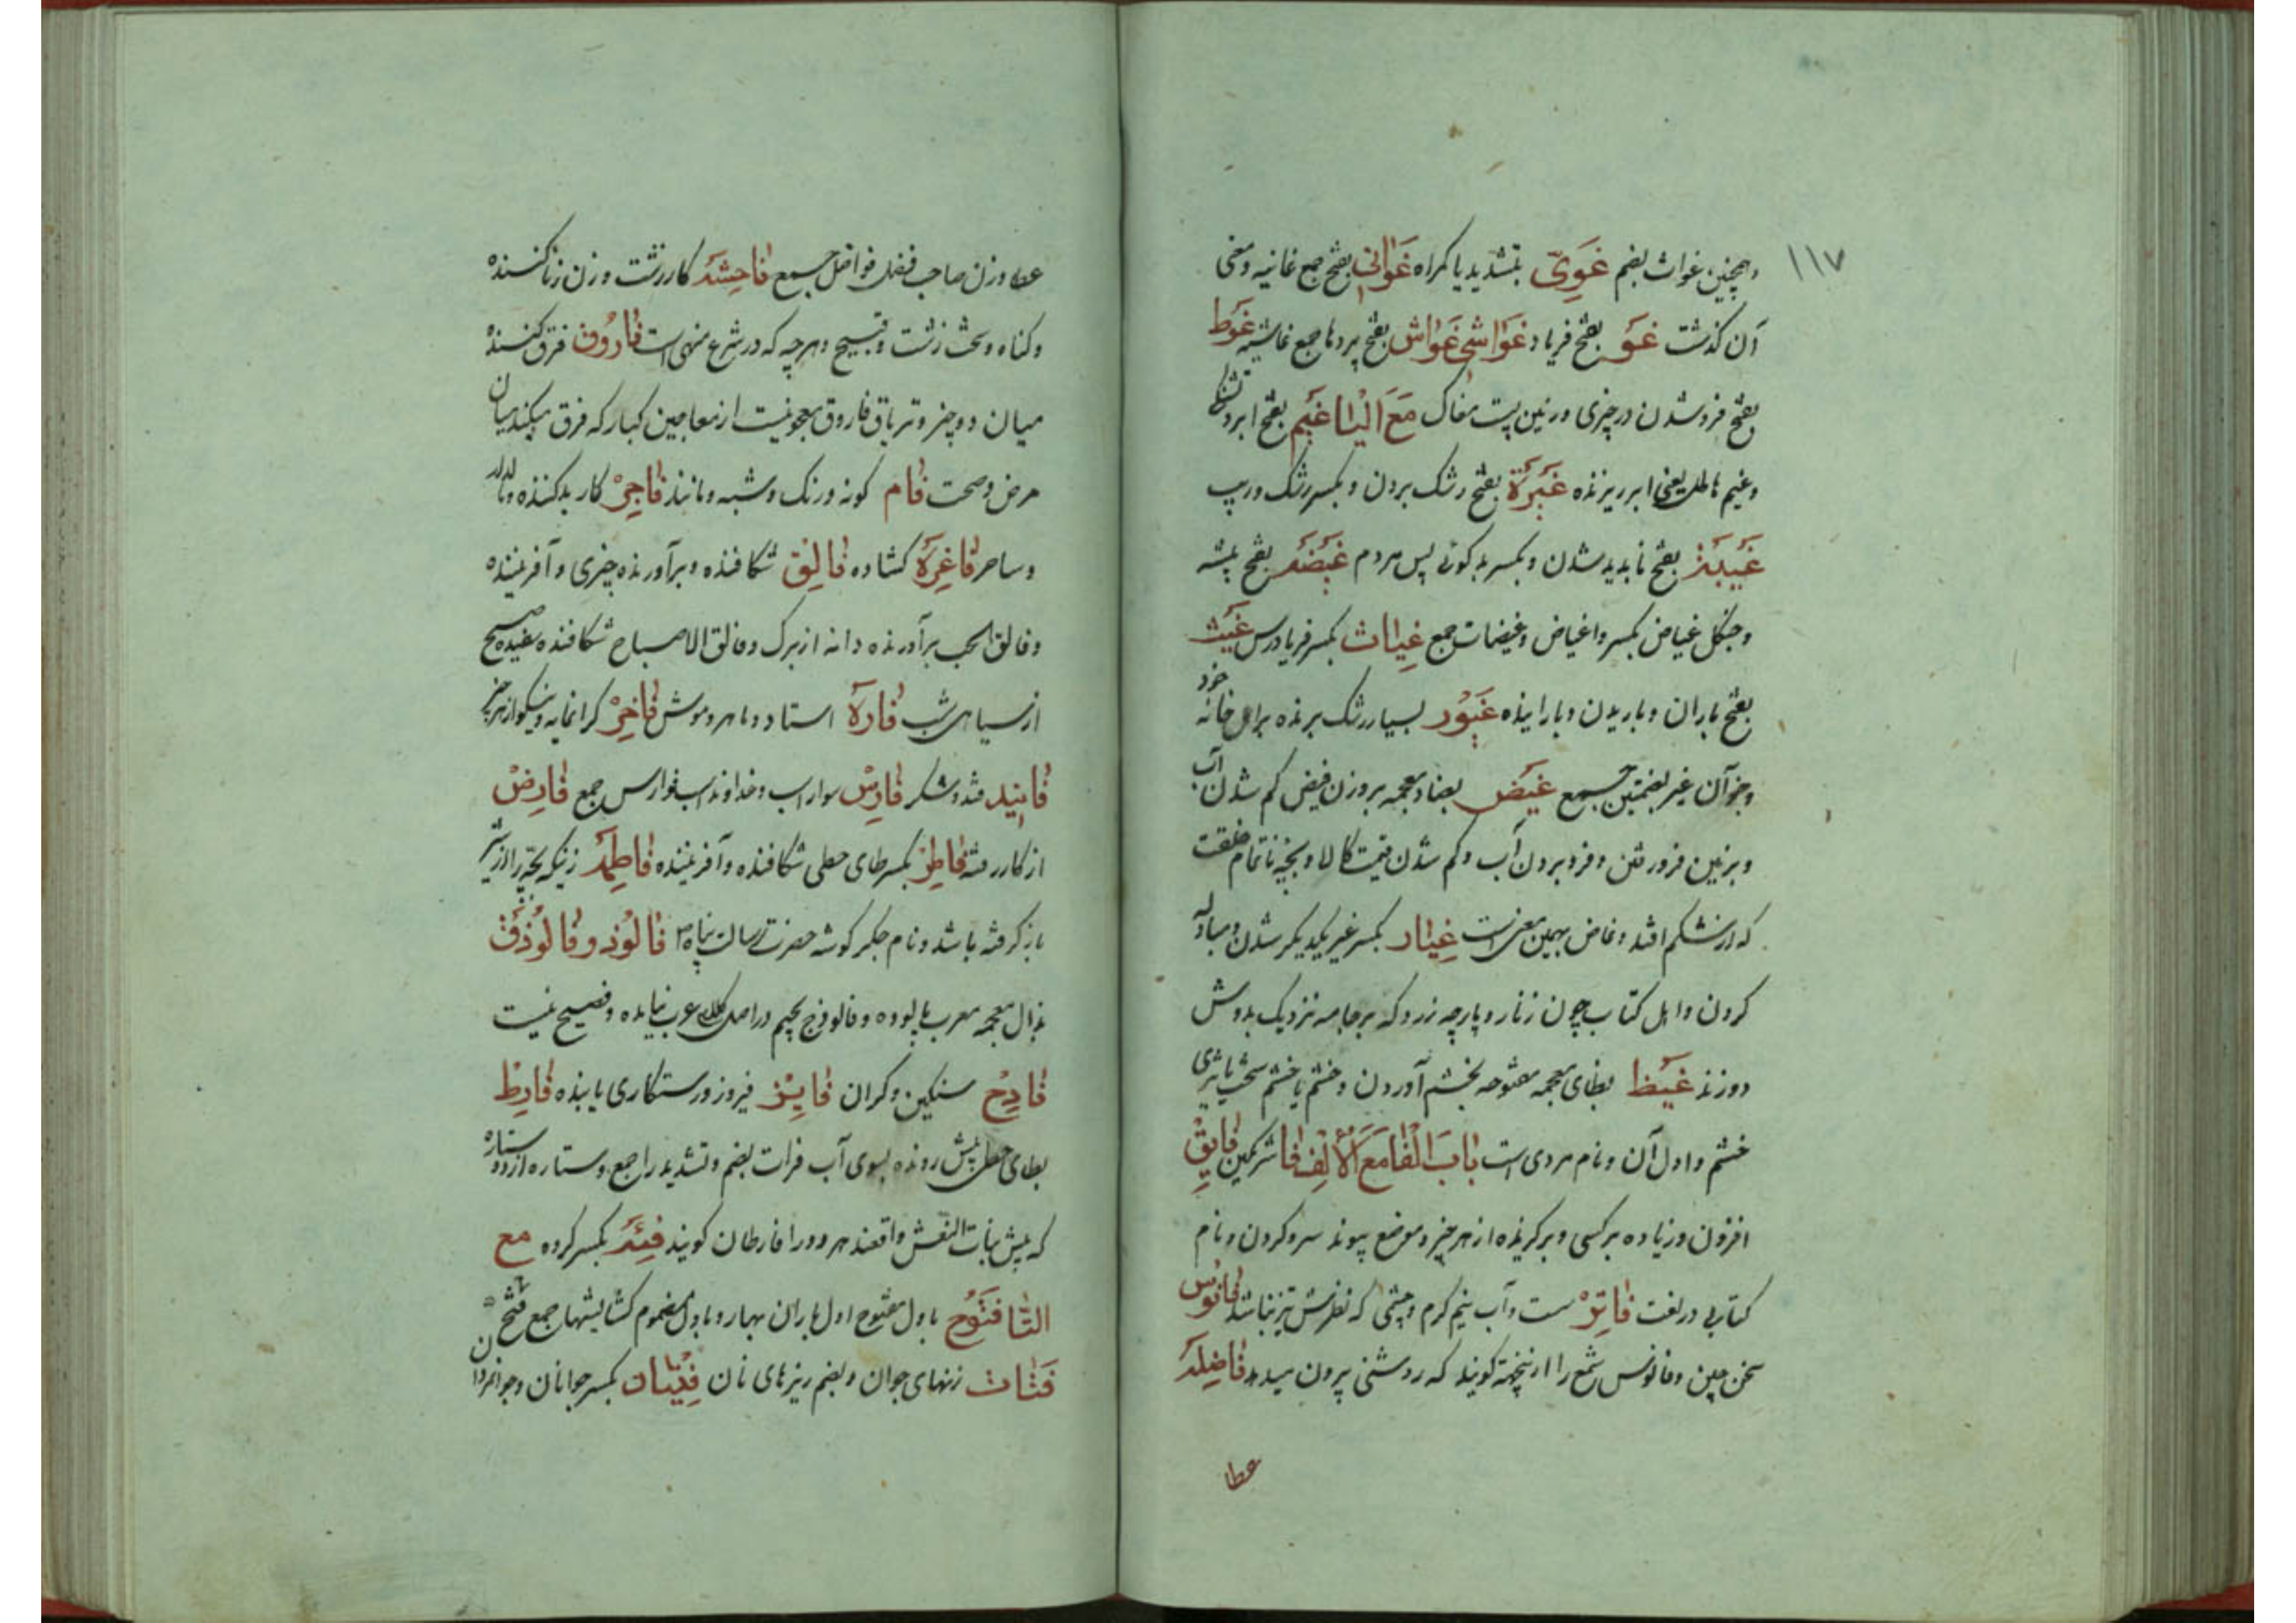 ۱۱۷
وهمچنین غوات بضم غَوِیّ بتشدید یا کمراه غَوانی بفتح جمع غانیه ومعنی
آن کذشت غَو بفتح فریاد غَواشی غَواش بفتح پردها جمع غاشیه غَوط
بفتح فروشدن در چیزی وزمین پست مغاک مَعَ الْیا غَیم بفتح ابر وتشنکی
وغیم هاطل یعنی ابر ریزنده غَیرَة بفتح رشک بردن وبکسر رشک وریب
غَیبَة بفتح ناپدید شدن وبکسر بدکوئی پس مردم غَیضَه بفتح بیشه
وجنکل غیاض بکسر واغیاض وغیضات جمع غِیاث بکسر فریادرس غَیث
بفتح باران وباریدن وباراینده غَیُوْر بسیار رشک برنده بر اهل خانه خود
وجز آن غیر بضمتین جمع غَیض بضاد معجمه بر وزن فیض کم شدن آب
وبزمین فرورفتن وفروبردن آب وکم شدن قیمت کالا وبچه ناتمام خلقت
که از شکم افتد وغاض بهمین معنی است غِیار بکسر غیر یکدیکر شدن ومبادله
کردن واهل کتاب چون زنار وپارچه زرد که بر جامه نزدیک بدوش
دوزند غَیظ بظای معجمه مفتوحه بخشم آوردن وخشم یا خشم سخت یا تیزی
خشم واول آن ونام مردی است بابَ الْفا مَعَ الْاَلِف فا شرمکین فایِقْ
افزون وزیاده بر کسی وبرکزیده از هر چیز وموضع پیوند سر وکردن ونام
کتابی در لغت فاتِرْ سست وآب نیم کرم وچشمی که نظرش تیز نباشد فانوس
سخن چین وفانوس شمع را از نیجهته کویند که روشنی بیرون میدهد فاضِلَه
عطا
عطا وزن صاحب فضل فواضل جمع فاحِشَه کار زشت وزن زناکننده
وکناه وسخت زشت وقبیح وهرچه که در شرع منهی است فارُوق فرق کننده
میان دو چیز وتریاق فاروق معجونیست از معاجین کبار که فرق میکند میان
مرض وصحت فام کونه ورنک وشبه ومانند فاجِرْ کار بدکننده ومالدار
وساحر فاغِرَه کشاده فالِق شکافنده وبرآورنده چیزی وآفریننده
وفالق الحب برآورنده دانه از برک وفالق الاصباح شکافنده سفیده صبح
از سیاهی شب فارَه استاد وماهر وموش فاخِرْ کرانمایه ونیکو از هر چیز
فانید قند وشکر فارِسْ سوار اسب وخداوند اسب فوارس جمع فارِضْ
از کار رفته فاطِرْ بکسر طای حطی شکافنده وآفریننده فاطِمَه زنیکه بچه را از شیر
باز کرفته باشد ونام جکر کوشه حضرت رسالت پناه ص فالُوْذ وفالُوْذَق
بذال معجمه معرب پالوده وفالوذج بجیم در اصل کلام عرب نیامده وفصیح نیست
فادِحْ سنکین وکران فایِز فیروز ورستکاری یابنده فارِطْ
بطای حطی پیش رونده بسوی آب فرات بضم وتشدید را جمع وستاره از دو ستاره
که پیش بنات النعش واقعند هر دو را فارطان کویند فِئَه بکسر کروه مع
التّا فَتُوْح باول مفتوح اول باران بهار وباول مضموم کشایشها جمع فتح
فَتات زنهای جوان وبضم ریزهای نان فِتْیان بکسر جوانان وجوانمردان